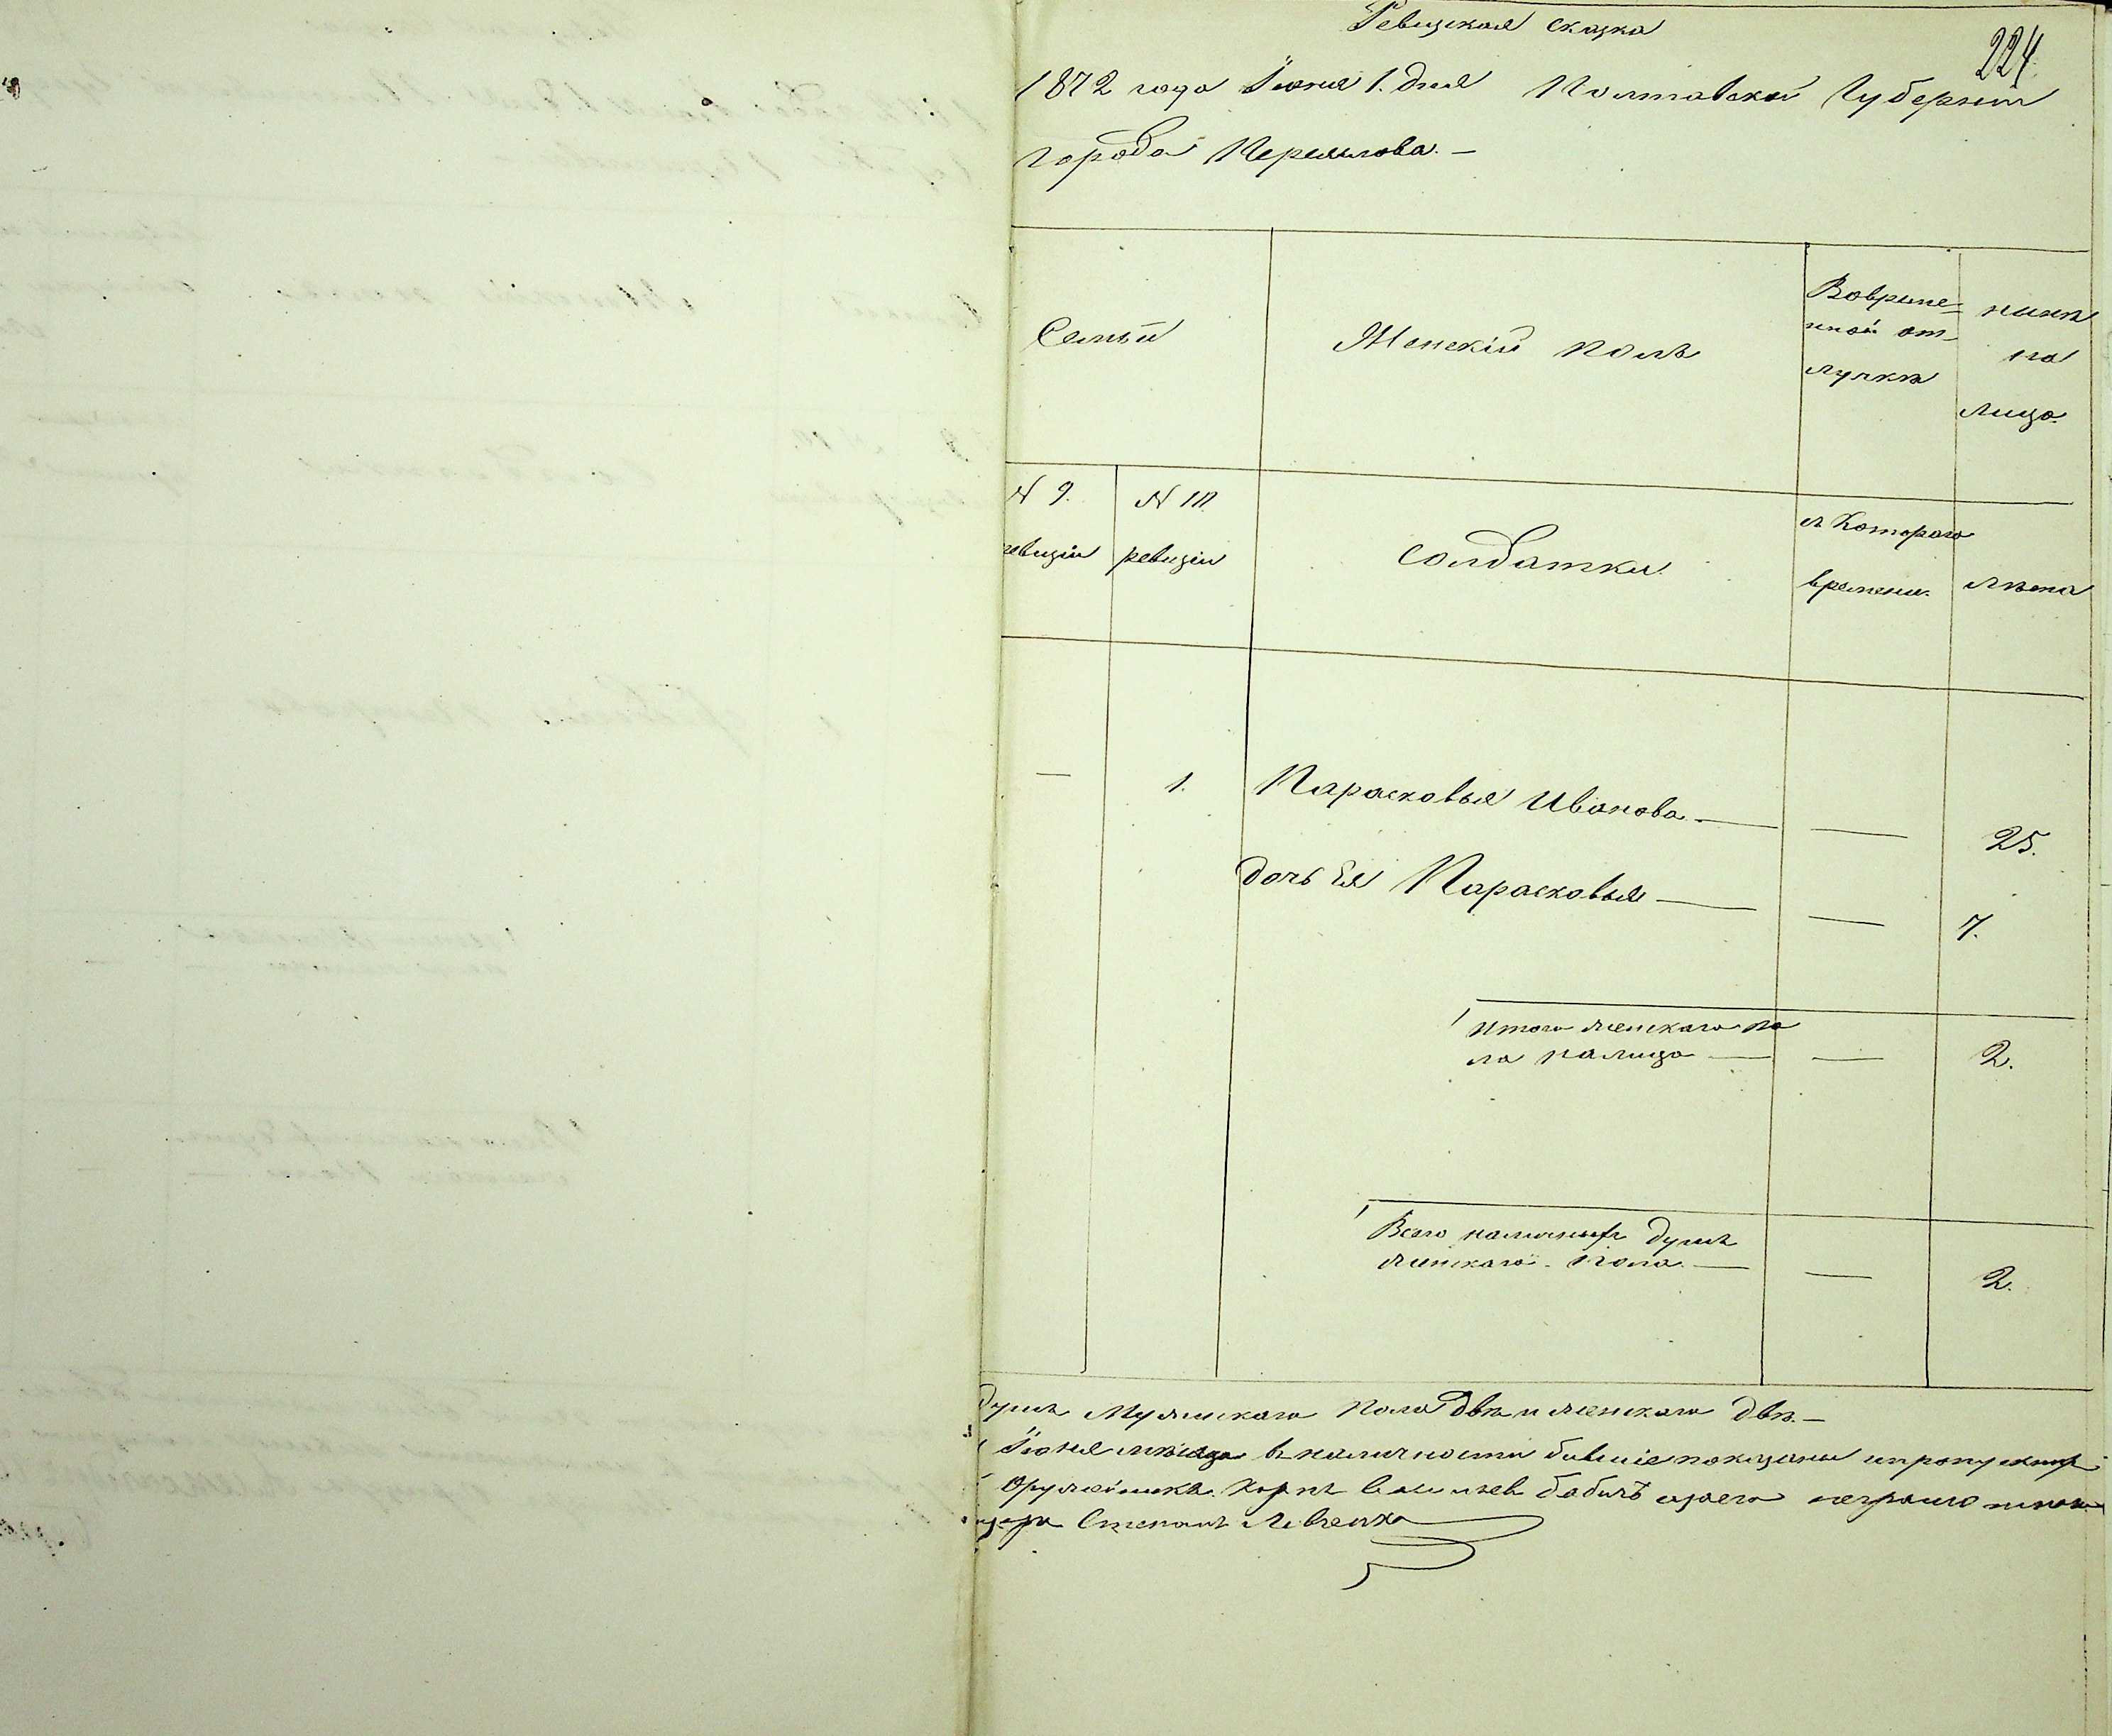 224
Ревизская сказка
1872 года Іюня 1. дня Полтавской Губерніи
города Переяслова. —
Семьи
Женскій полъ
Вовреме-
нной от-
лучкѣ
нынѣ
на
лицо.
N 9.
ревизіи
N 10.
ревизіи
солдатки
с котораго
времени.
лѣта
— 1. Парасковья Иванова — — 25.
дочь Ея Парасковья — — 7.
Итого женскаго по
ла налицо — — 2.
Всего наличныхъ душъ
женскаго пола — — 2.
душъ Мужескаго пола двѣ и женскаго двѣ. —
Іюня мѣсяца в наличности бывшіе показаны и пропускныхъ
Оружейника Васильев неграмотнаго
Степанъ Левченко